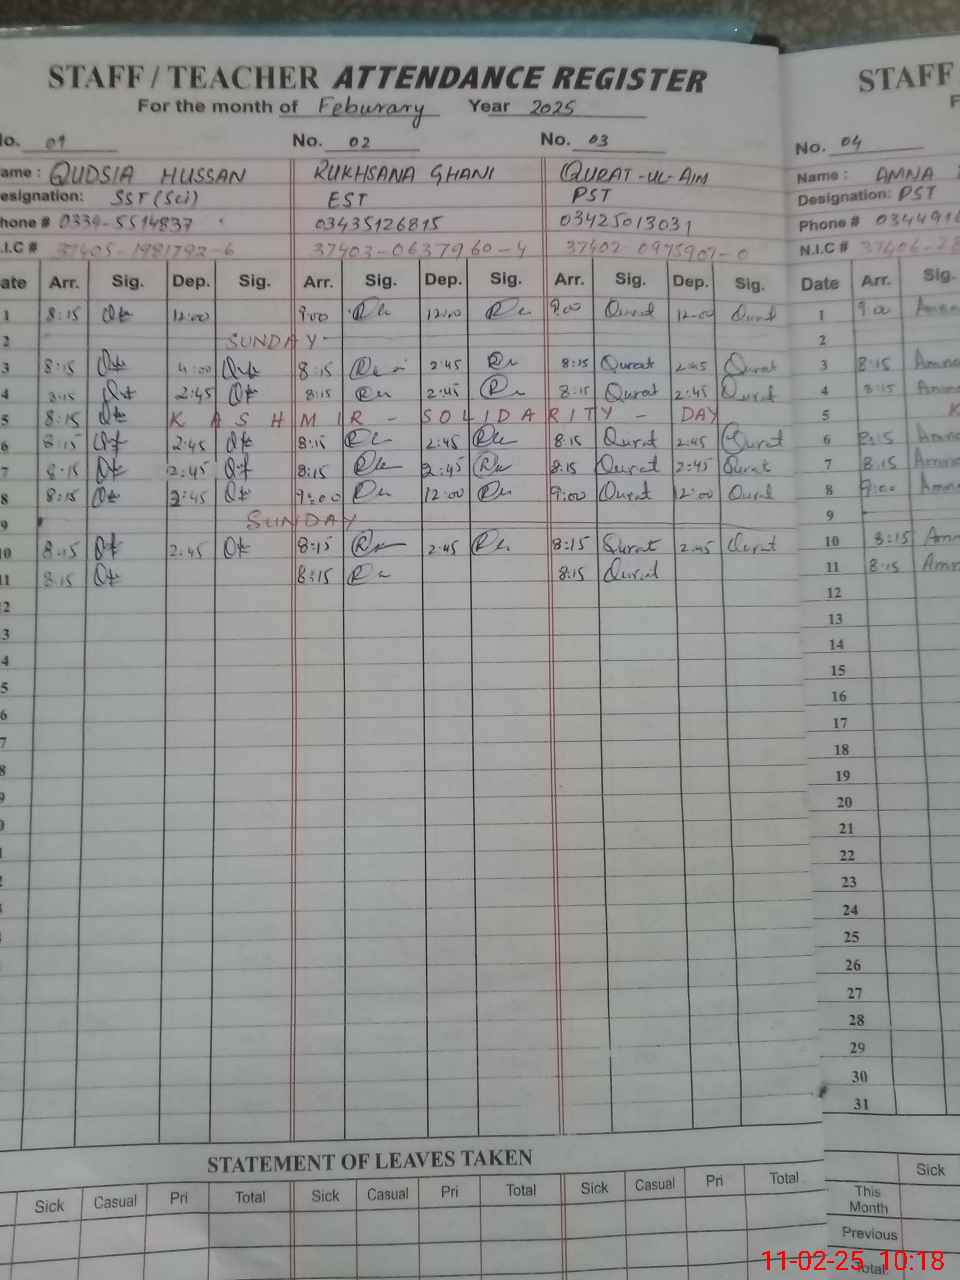 STAFF / TEACHER ATTENDANCE REGISTER STAFF
For the month of Feburary Year 2025 F
No. 01 No. 02 No. 03 No. 04
ame : QUDSIA HUSSAN RUKHSANA GHANI QURAT-UL-AIM Name : AMNA
esignation: SST (Sci) EST PST Designation: PST
hone # 0334-5514837 03435126815 03425013031 Phone # 0344916
.I.C # 37405-1981792-6 37403-0637960-4 37402-0975907-0 N.I.C # 37406-28
ate Arr. Sig. Dep. Sig. Arr. Sig. Dep. Sig. Arr. Sig. Dep. Sig. Date Arr. Sig.
1 8:15 12:00 9:00 12:00 9:00 Qurat 12:00 Qurat 1 9:00 Amn
2 SUNDAY 2
3 8:15 4:00 8:15 2:45 8:15 Qurat 2:45 Qurat 3 8:15 Amna
4 8:15 2:45 8:15 2:45 8:15 Qurat 2:45 Qurat 4 8:15 Amna
5 8:15 KASHMIR - SOLIDARITY - DAY 5 K
6 8:15 2:45 8:15 2:45 8:15 Qurat 2:45 Qurat 6 8:15 Amna
7 8:15 2:45 8:15 2:45 8:15 Qurat 2:45 Qurat 7 8:15 Amna
8 8:15 2:45 9:00 12:00 9:00 Qurat 12:00 Qurat 8 9:00 Amna
9 SUNDAY 9
10 8:15 2:45 8:15 2:45 8:15 Qurat 2:45 Qurat 10 8:15 Amn
11 8:15 8:15 8:15 Qurat 11 8:15 Amn
2 12
3 13
4 14
5 15
6 16
7 17
8 18
9 19
20
21
22
23
24
25
26
27
28
29
30
31
STATEMENT OF LEAVES TAKEN
Sick Casual Pri Total Sick Casual Pri Total Sick Casual Pri Total Sick
This Month
Previous
Total
11-02-25 10:18